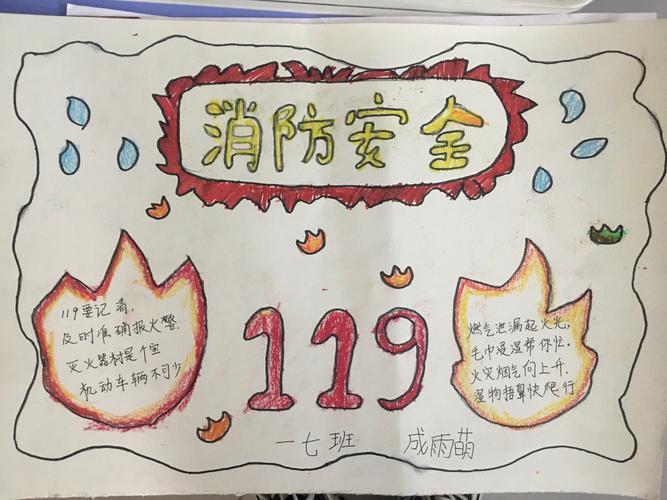 消防安全
119要记清,
及时准确报火警.
灭火器材是个宝
机动车辆不可少
119
燃气泄漏起火光,
毛巾浸湿帮你忙.
火灾烟气向上升,
湿物捂鼻快爬行
一七班 成雨萌